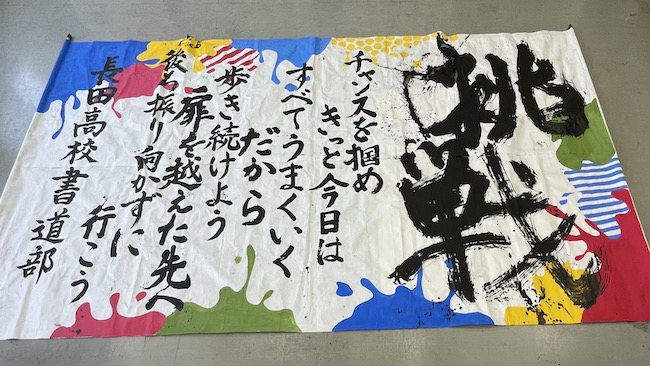 挑戦
チャンスを掴め
きっと今日は
すべてうまくいく
だから
歩き続けよう
扉を越えた先へ
後ろ振り向かずに
行こう
長田高校書道部